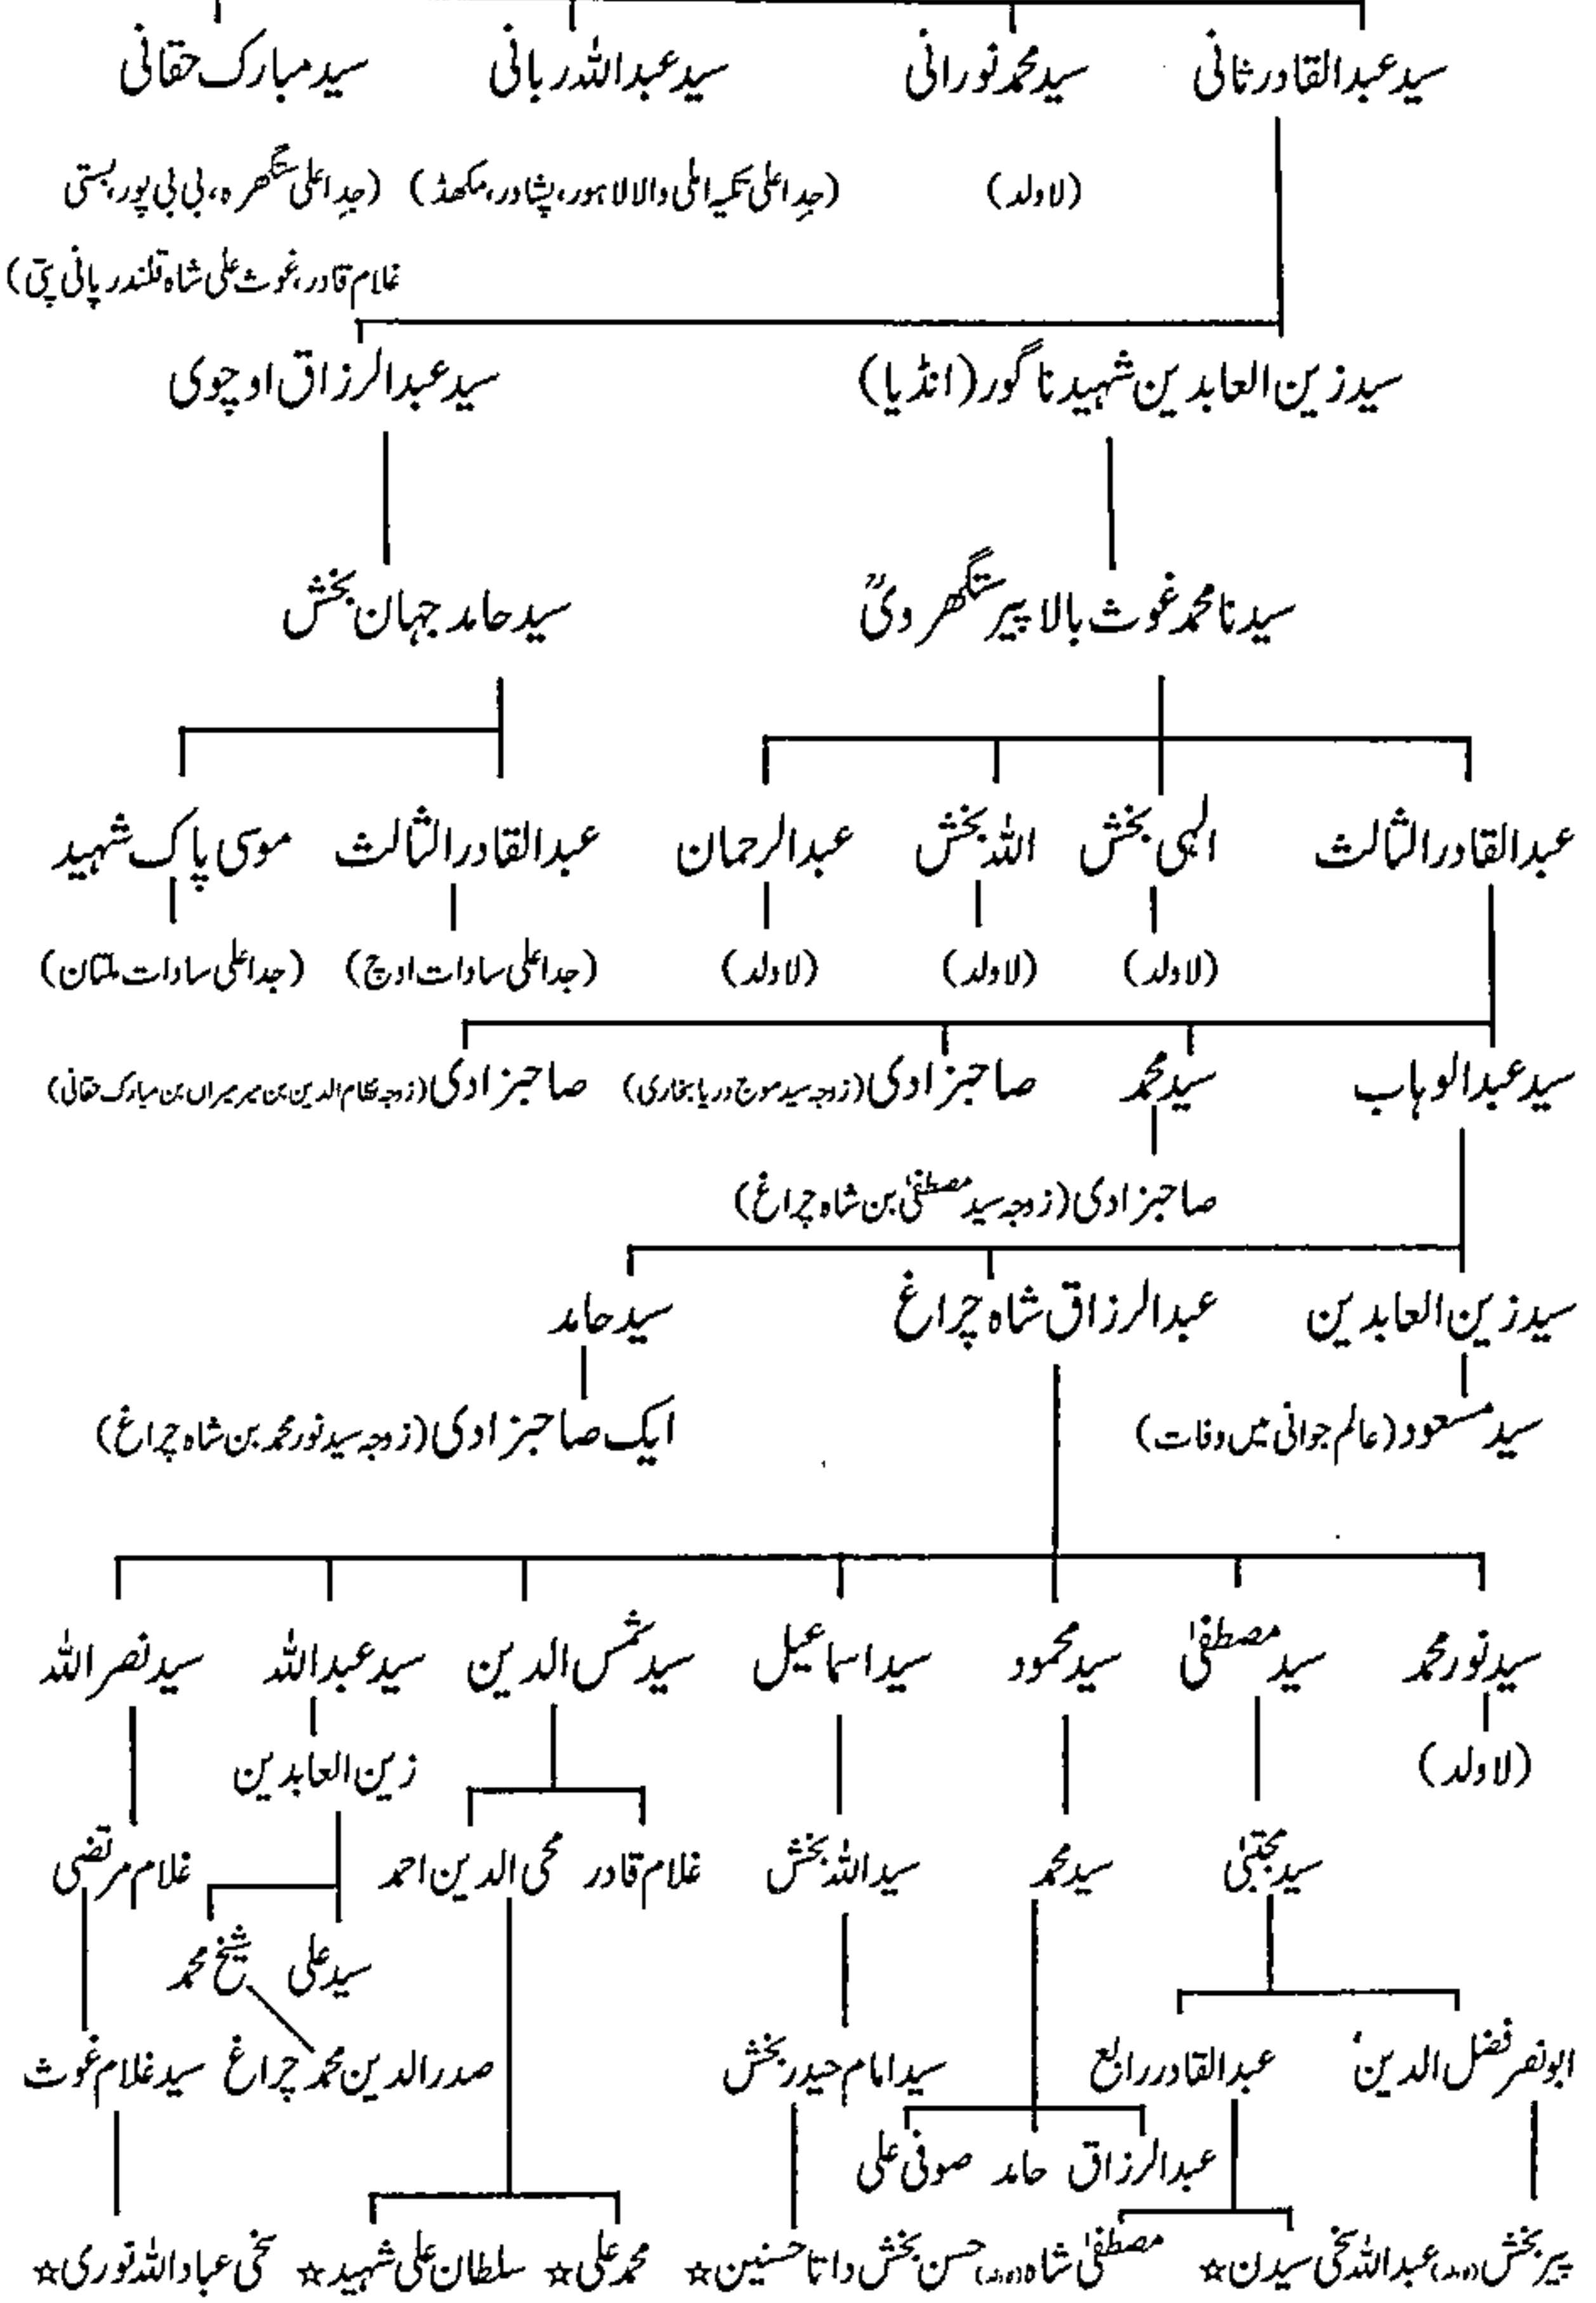 سید عبدالقادر ثانی سید محمد نورانی سید عبداللہ ربانی سید مبارک حقانی
(لاولد) (جدِ اعلیٰ تکیہ املی والا لاہور، پشاور، مکھڈ) (جدِ اعلیٰ ستگھرہ، بی بی پور، بستی
غلام قادر، غوث علی شاہ قلندر پانی پتی)
سید زین العابدین شہید ناگور (انڈیا) سید عبدالرزاق اوچوی
سیدنا محمد غوث بالا پیر ستگھرویؒ سید حامد جہان بخش
عبدالقادر الثالث الہی بخش اللہ بخش عبدالرحمان عبدالقادر الثالث موسی پاک شہید
(لاولد) (لاولد) (لاولد) (جد اعلی سادات اوچ) (جد اعلی سادات ملتان)
سید عبدالوہاب سید محمد صاحبزادی (زوجہ سید موج دریا بخاری) صاحبزادی (زوجہ نظام الدین بن میر میراں بن مبارک حقانی)
صاحبزادی (زوجہ سید مصطفیٰ بن شاہ چراغ)
سید زین العابدین عبدالرزاق شاہ چراغ سید حامد
سید مسعود (عالم جوانی میں وفات) ایک صاحبزادی (زوجہ سید نور محمد بن شاہ چراغ)
سید نور محمد سید مصطفیٰ سید محمود سید اسماعیل سید شمس الدین سید عبداللہ سید نصر اللہ
(لاولد) زین العابدین
سید مجتبیٰ سید محمد سید اللہ بخش غلام قادر محی الدین احمد غلام مرتضی
سید علی شیخ محمد
ابونصر فضل الدین عبدالقادر رابع سید امام حیدر بخش صدرالدین محمد چراغ سید غلام غوث
عبدالرزاق حامد صوفی علی
پیر بخش (ولد) عبداللہ سخی سیدن☆ مصطفیٰ شاہ (ولد) حسن بخش داتا حسنین☆ محمد علی☆ سلطان علی شہید☆ سخی عباد اللہ نوری☆